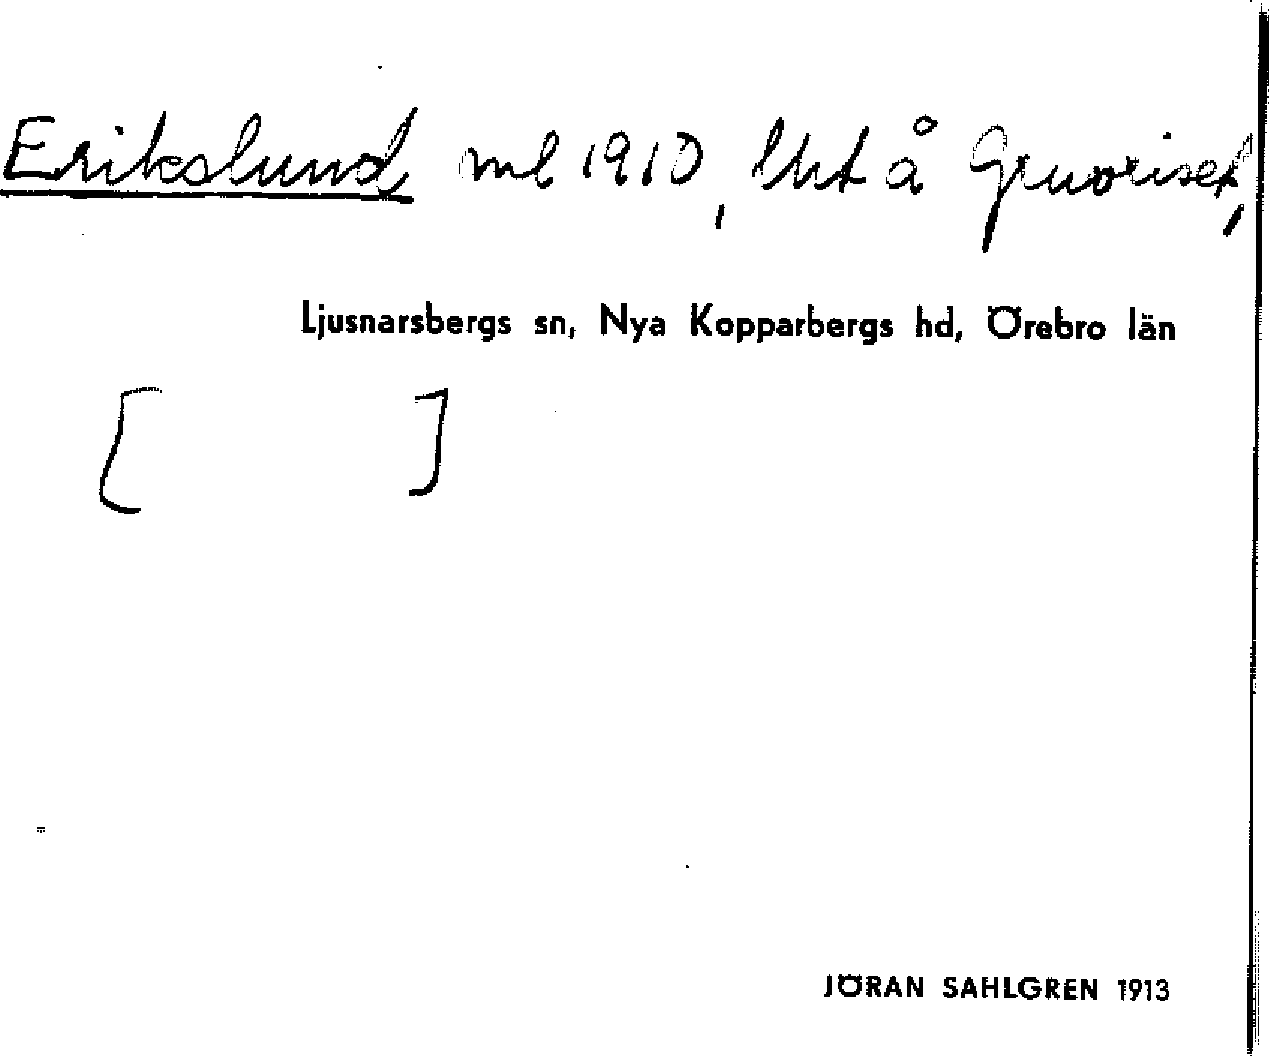 Erikslund ml 1910, lht å Gruvriset,
Ljusnarsbergs sn, Nya Kopparbergs hd, Örebro län
[ ]
JÖRAN SAHLGREN 1913